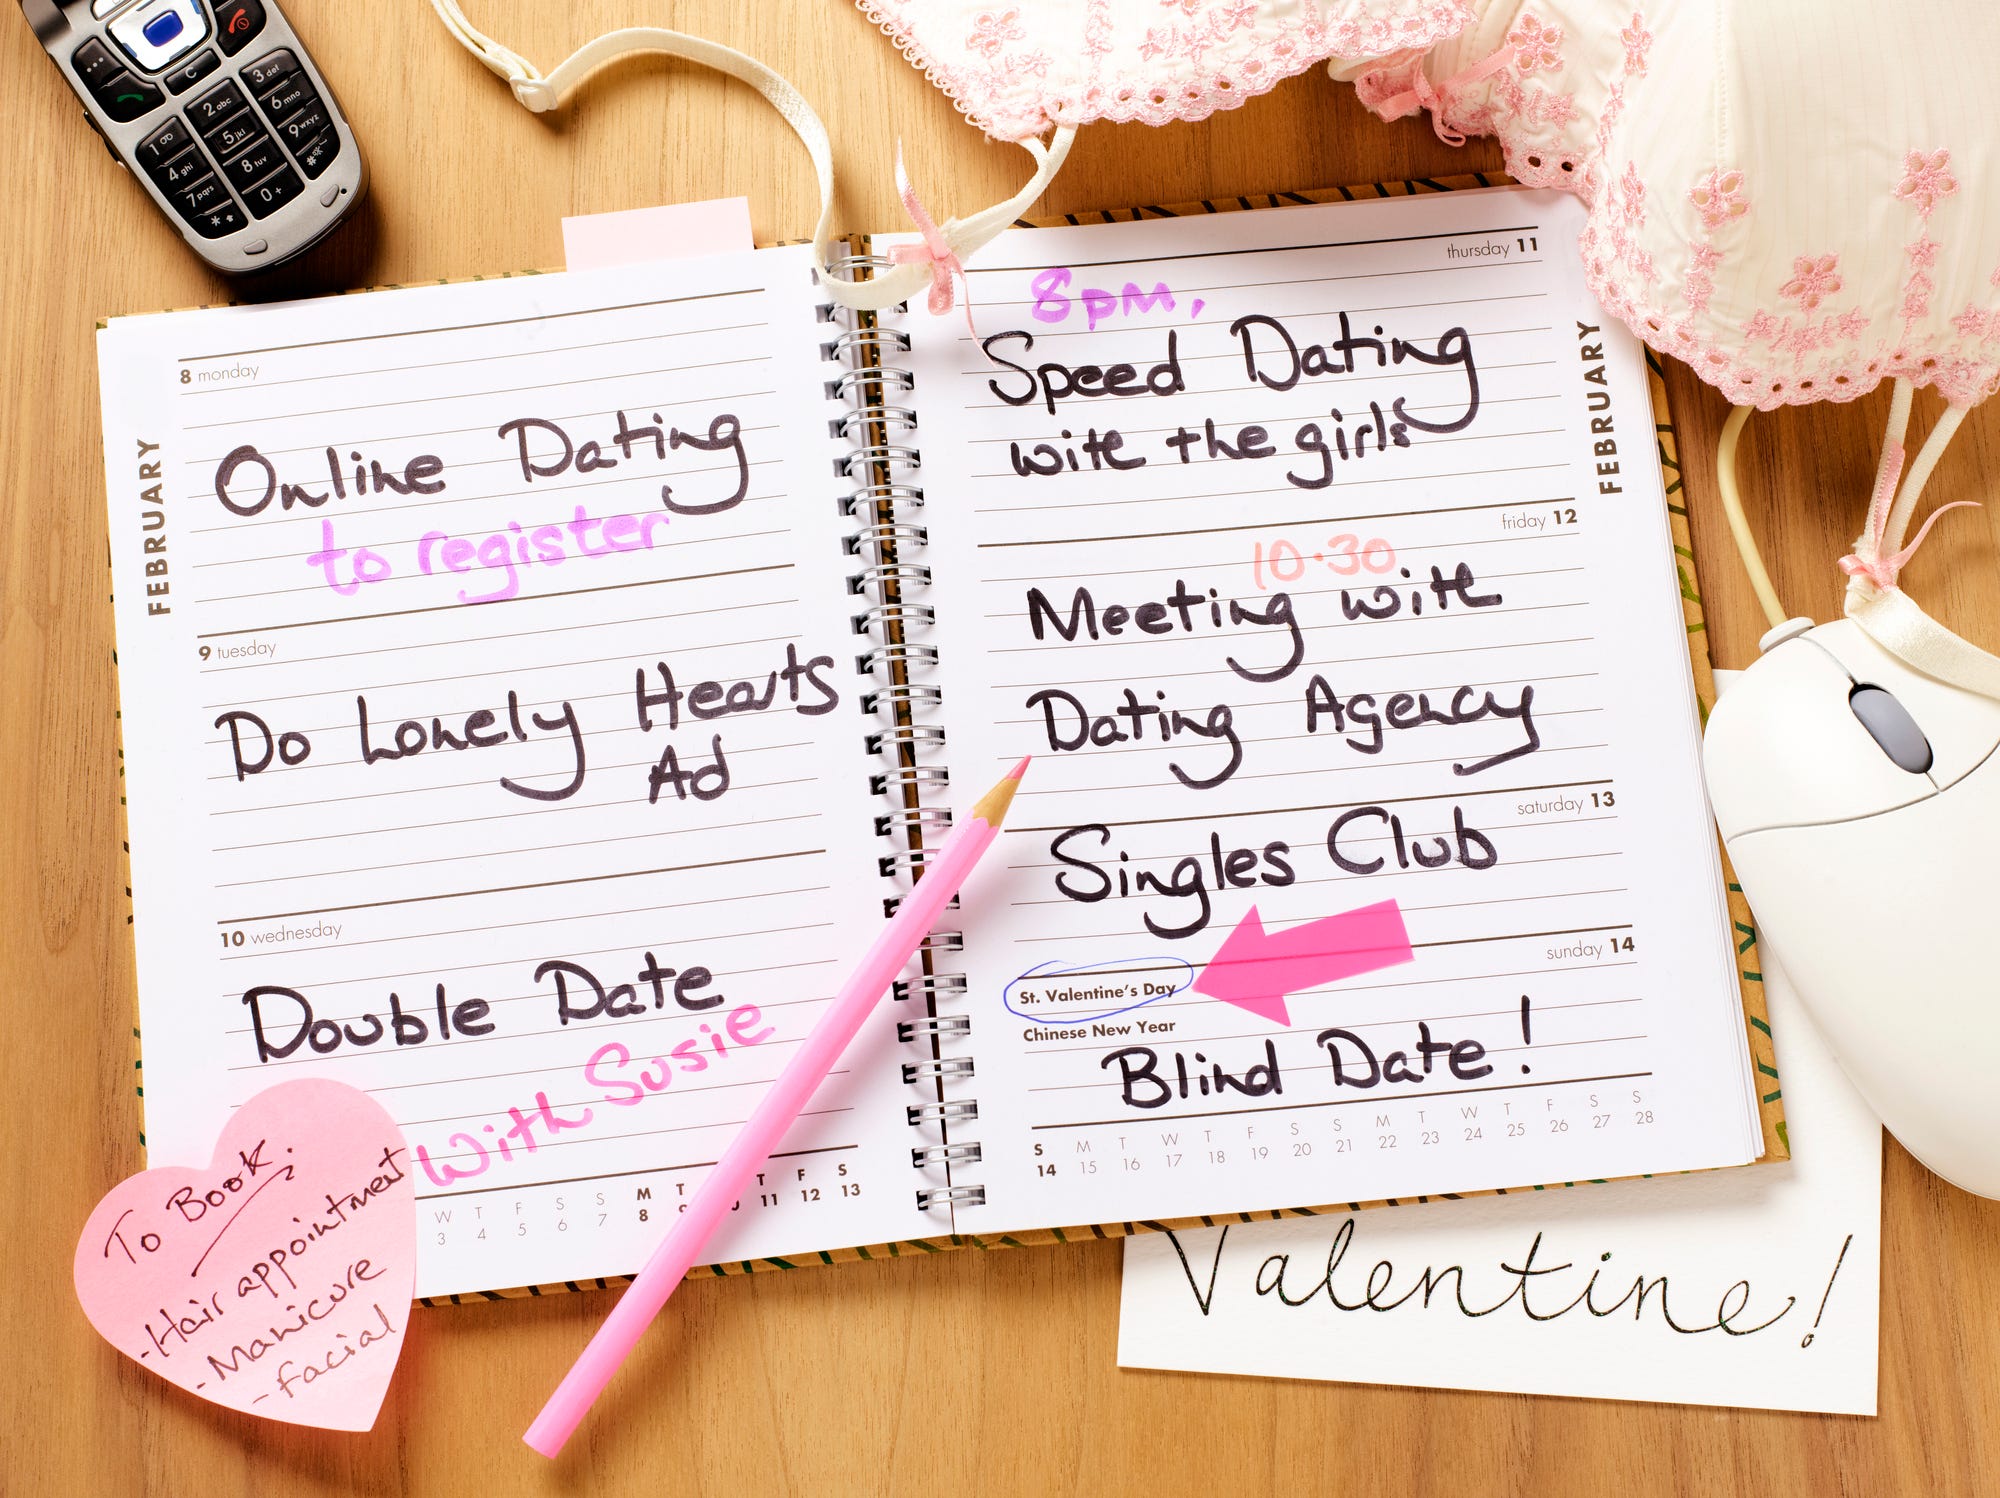 8 monday
FEBRUARY
Online Dating
to register
9 tuesday
Do Lonely Hearts
Ad
10 wednesday
Double Date
With Susie
W T F S S M T T F S
3 4 5 6 7 8 9 11 12 13
thursday 11
FEBRUARY
8pm,
Speed Dating
with the girls
friday 12
10.30
Meeting with
Dating Agency
saturday 13
Singles Club
sunday 14
St. Valentine's Day
Chinese New Year
Blind Date!
S M T W T F S S M T W T F S S
14 15 16 17 18 19 20 21 22 23 24 25 26 27 28
To Book:
-Hair appointment
-Manicure
-Facial
Valentine!
C
1 2abc 3def
4ghi 5jkl 6mno
7pqrs 8tuv 9wxyz
* 0+ #